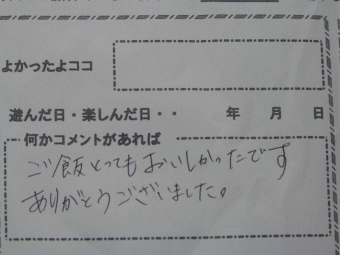 よかったよココ
遊んだ日・楽しんだ日・・ 年 月 日
何かコメントがあれば
ご飯とってもおいしかったです
ありがとうございました。